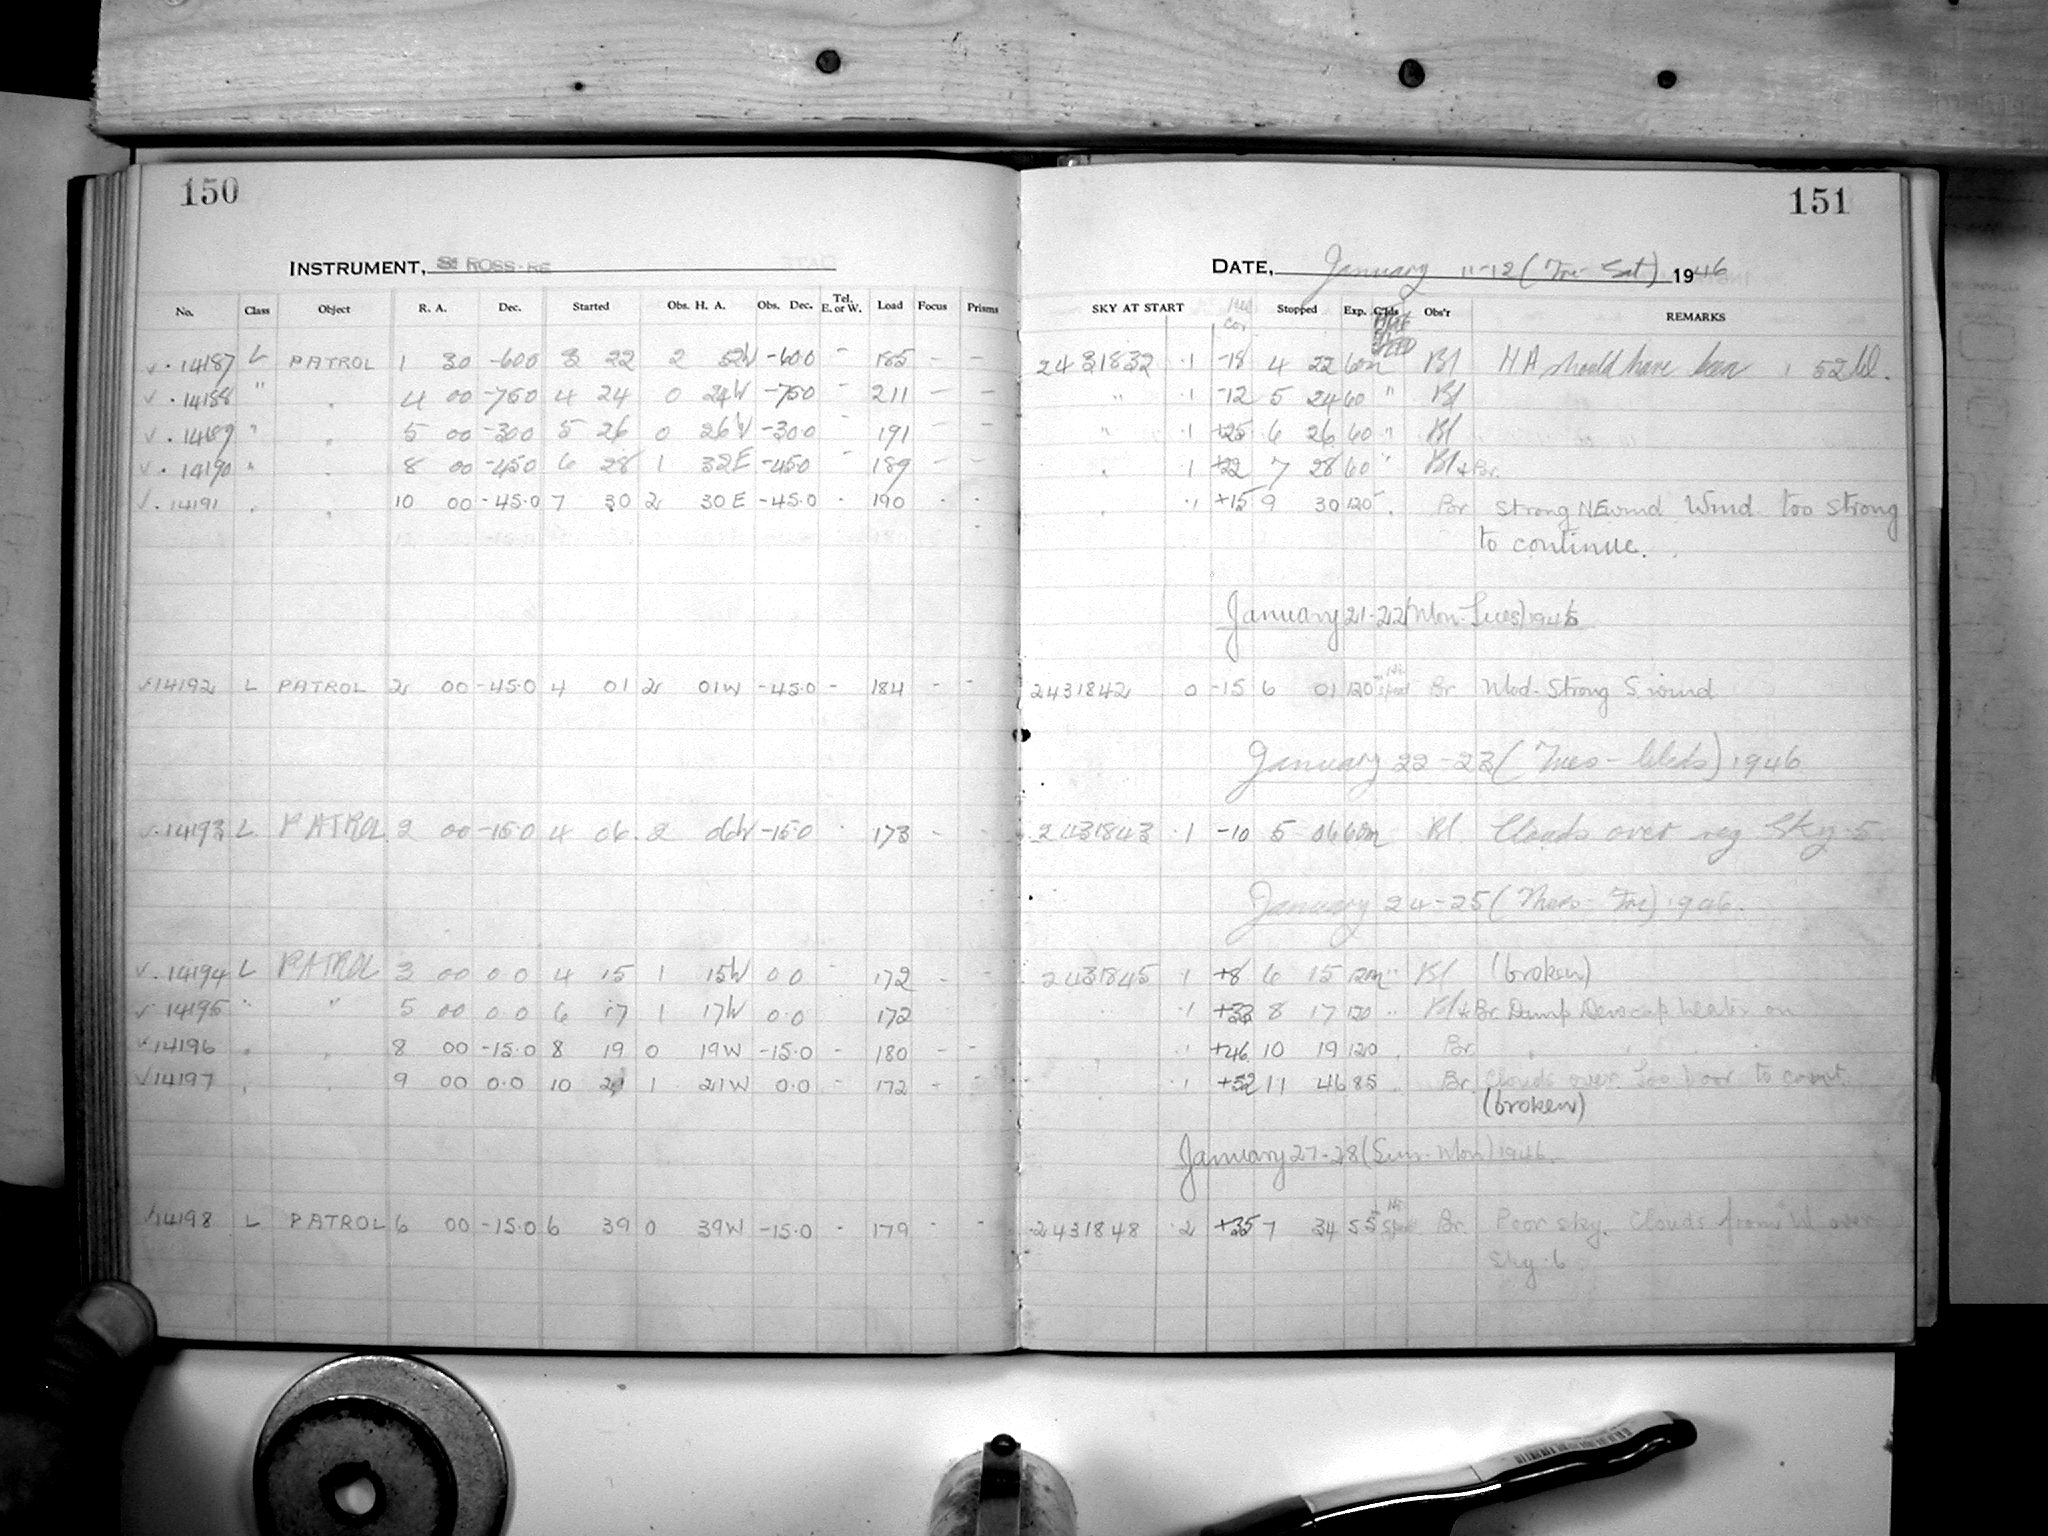 150
INSTRUMENT, ROSS-RE
No. Class Object R. A. Dec. Started Obs. H. A. Obs. Dec. Tel. E. or W. Load Focus Prisms
√ . 14187 L PATROL 1 30 -600 3 22 2 52W -600 - 185 - -
√ . 14188 " " 4 00 -750 4 24 0 24W -750 - 211 - -
√ . 14189 " " 5 00 -300 5 26 0 26W -300 - 191 - -
√ . 14190 " " 8 00 -450 6 28 1 32E -450 - 189 - -
√ . 14191 " " 10 00 -45.0 7 30 2 30E -45.0 - 190 - -
√14192 L PATROL 2 00 -45.0 4 01 2 01W -45.0 - 184 - -
√ . 14193 L PATROL 2 00 -15.0 4 06 2 06W -15.0 - 173 - -
√ . 14194 L PATROL 3 00 0 0 4 15 1 15W 0 0 - 172 - -
√ 14195 " " 5 00 0 0 6 17 1 17W 0.0 - 172 - -
√14196 " " 8 00 -15.0 8 19 0 19W -15.0 - 180 - -
√14197 " " 9 00 0.0 10 21 1 21W 0.0 - 172 - -
√14198 L PATROL 6 00 -15.0 6 39 0 39W -15.0 - 179 - -
151
DATE, January 11-12 (Fri-Sat) 1946
SKY AT START Stopped Exp. Obs'r REMARKS
2431832 .1 -18 4 22 60m Bl HA should have been 1 52W.
" .1 -12 5 24 60 " Bl
" .1 +25 6 26 60 " Bl
" .1 +22 7 28 60 " Bl & Br.
" .1 +15 9 30 120 " Br Strong NE wind Wind too strong
to continue.
January 21-22 (Mon-Tues) 1946
2431842 0 -15 6 01 120 Br Mod-Strong S wind
January 22-23 (Tues-Weds) 1946
2431843 .1 -10 5 06 60m Bl. Clouds over reg Sky .5
January 24-25 (Thurs-Fri) 1946.
2431845 .1 +8 6 15 120m " Bl (broken)
" .1 +33 8 17 120 " Bl & Br. Damp Dewcap heater on
" .1 +46 10 19 120 " Br " " "
" .1 +52 11 46 85 " Br. Clouds over. Too poor to cont.
(broken)
January 27-28 (Sun-Mon) 1946.
2431848 .2 +35 7 34 55 Br. Poor sky. Clouds from W over
Sky .6